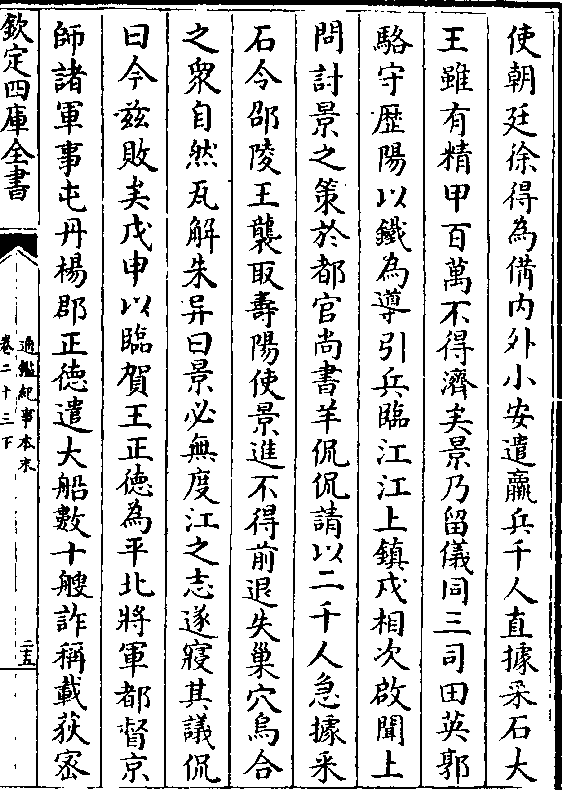 使朝廷徐得為備内外小安遣羸兵千人直據采石大
王雖有精甲百萬不得濟矣景乃留儀同三司田英郭
駱守歴陽以鐵為導引兵臨江江上鎮戍相次啟聞上
問討景之策於都官尚書羊侃侃請以二千人急據采
石令邵陵王襲取壽陽使景進不得前退失巢穴烏合
之衆自然瓦解朱异曰景必無度江之志遂寢其議侃
曰今兹敗矣戊申以臨賀王正德為平北將軍都督京
師諸軍事屯丹楊郡正德遣大船數十艘詐稱載荻宻
欽定四庫全書
通鑑紀事本末
卷二十三下
二五